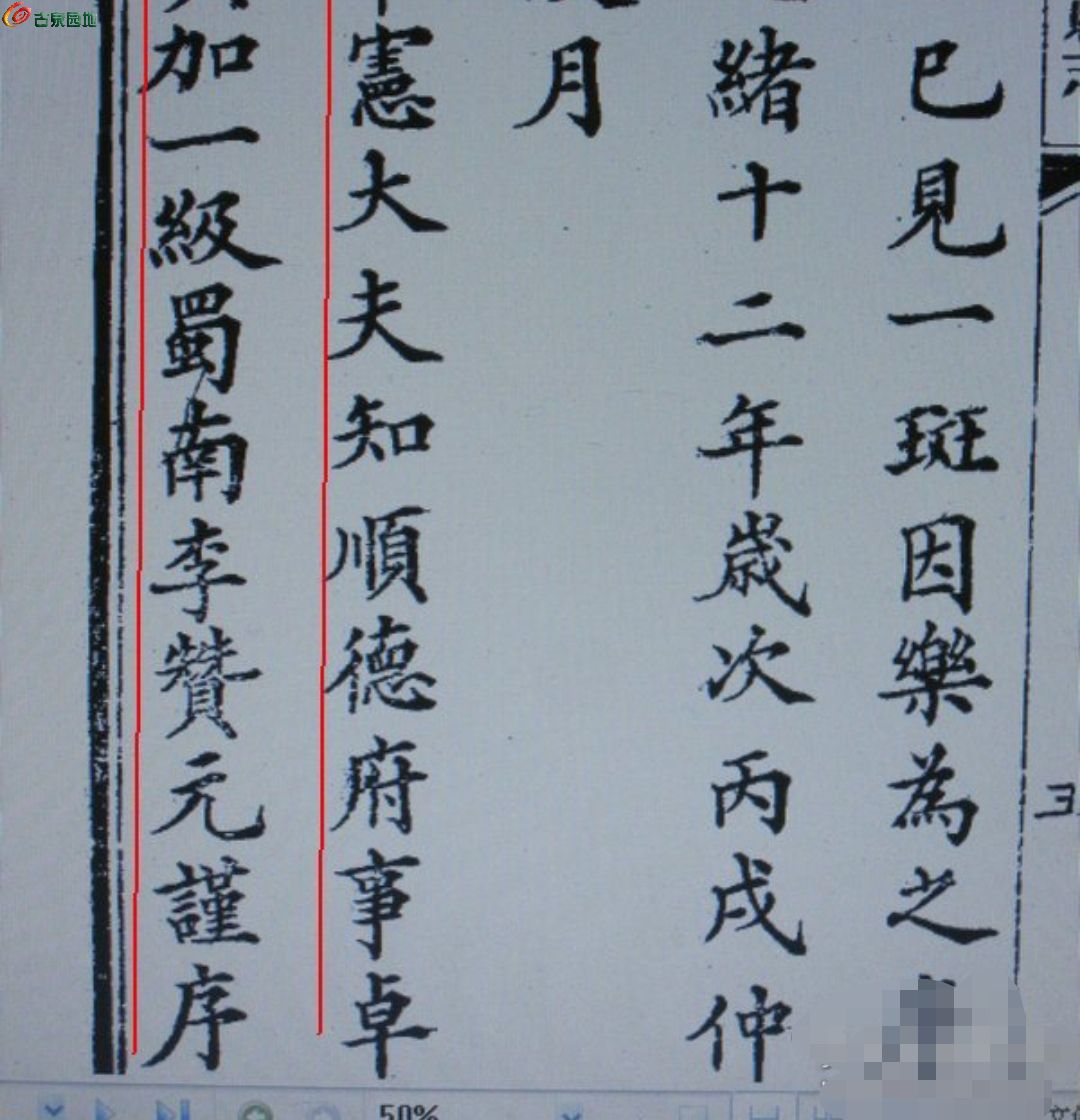 已見一斑因樂為之
緒十二年歲次丙戌仲
月
憲大夫知順德府事卓
加一級蜀南李贊元謹序
古泉园地
50%